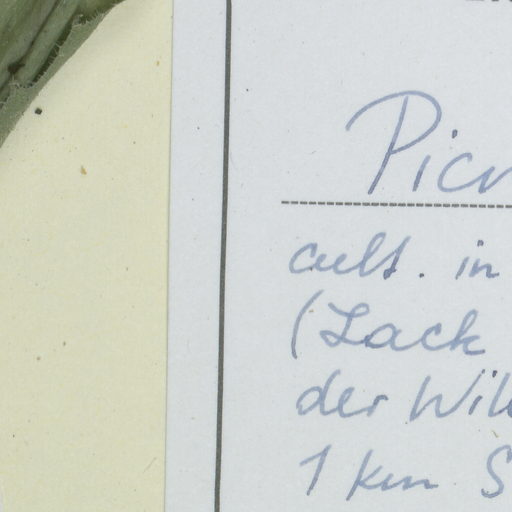 Picr
cult. in
(Lack
der Wil
1 km S